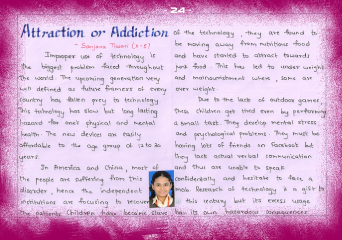 24
Attraction or Addiction
- Sanjana Tiwari (X-B)
Improper use of technology is
the biggest problem faced throughout
the world. The upcoming generation very
well defined as future framers of every
country has fallen prey to technology.
This technology has slow but long lasting
hazard for one's physical and mental
health. The new devices are easily
affordable to the age group of 12 to 20
years.
In America and China, most of
the people are suffering from this
disorder, hence the independent
institutions are focusing to recover
the patients. Children have become slave
of the technology, they are found to
be moving away from nutritious food
and have started to attract towards
junk food. This has led to under weight
and malnourishment where, some are
over weight.
Due to the lack of outdoor games,
then children get tired even by performing
a small task. They develop mental stress,
and psychological problems. They must be
having lots of friends on Facebook but
they lack actual verbal communication
and thus are unable to speak
confidentially and hesitate to face a
mob. Research of technology is a gift to
this century but its excess usage
has its own hazardous consequences.